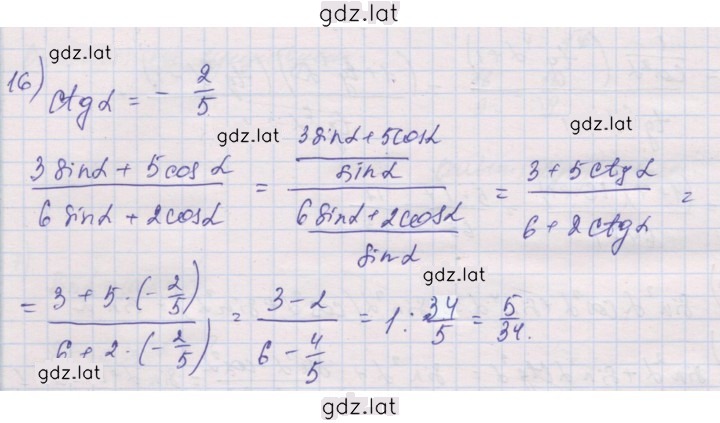 gdz.lat
gdz.lat
16) ctg α = - 2/5
gdz.lat
gdz.lat
(3 sin α + 5 cos α)/(6 sin α + 2 cos α) = ((3 sin α + 5 cos α)/sin α)/((6 sin α + 2 cos α)/sin α) = (3 + 5 ctg α)/(6 + 2 ctg α) =
gdz.lat
= (3 + 5 · (- 2/5))/(6 + 2 · (- 2/5)) = (3 - 2)/(6 - 4/5) = 1 : 34/5 = 5/34.
gdz.lat
gdz.lat